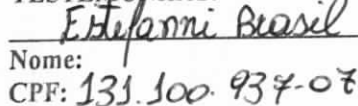 Estefanni Brasil
Nome:
CPF: 131.100.937-07